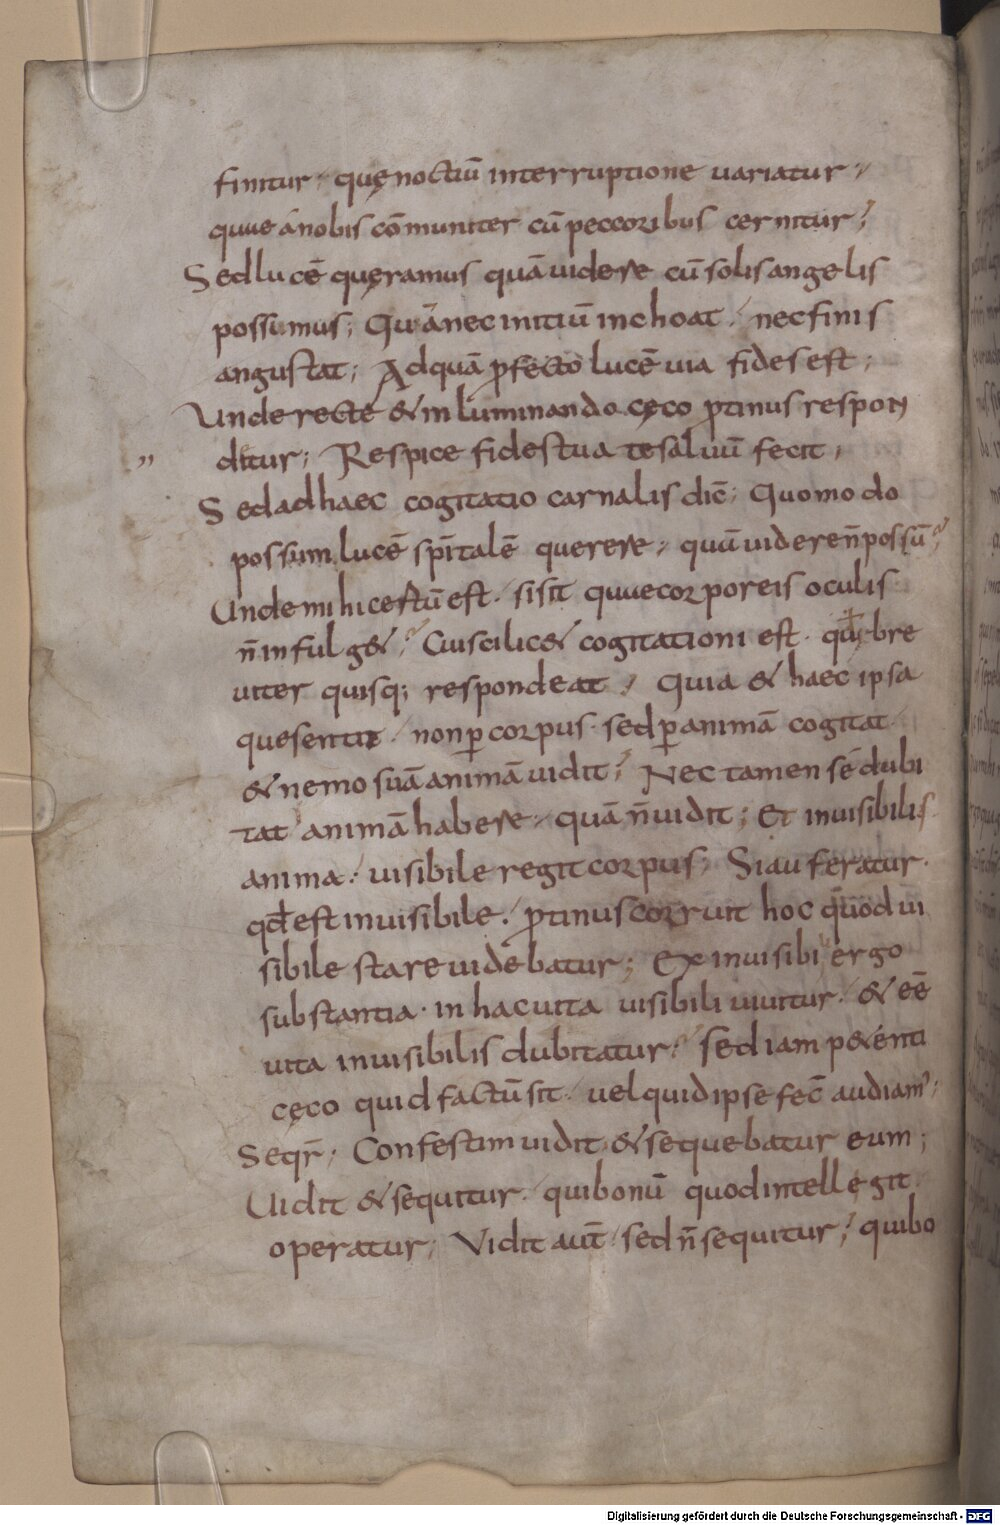 finitur. quę noctiū interruptione uariatur.
quae a nobis cōmuniter cū peccoribus cernitur;
Sed lucē quęramus quā uidere cū solis angelis
possumus; Quā nec initiū inchoat. nec finis
angustat; Ad quā ꝓfecto lucē uia fides est;
Unde recte & inluminando cęco ꝓtinus respon
„ ditur; Respice fides tua te saluū fecit;
Sed ad haec cogitatio carnalis dic̄; Quomodo
possum lucē sp̄italē querere. quā uidere n̄ possū?
Unde mihi certū est. si sit quae corporeis oculis
n̄ infulg&? Cui scilic& cogitationi est. quod bre
uiter quisq; respondeat. Quia & haec ipsa
que sentit. non ꝑ corpus. sed ꝑ animā cogitat.
& nemo suā animā uidit; Nec tamen se dubi
tat animā habere. quā n̄ uidit; Et inuisibilis
anima. uisibile regit corpus; Si auferatur.
qđ est inuisibile. ꝓtinus corruit hoc quod ui
sibile stare uidebatur; Ex inuisibi ergo
substantia. in hac uita uisibili uiuitur. & eē
uita inuisibilis dubitatur? sed iam p&enti
cęco quid factū sit. uel quid ipse fec̄ audiam';
Seqr̄. Confestim uidit & sequebatur eum;
Uidit & sequitur. qui bonū quod intellegit.
operatur; Vidit aut̄. sed n̄ sequitur; qui bo
Digitalisierung gefördert durch die Deutsche Forschungsgemeinschaft - DFG